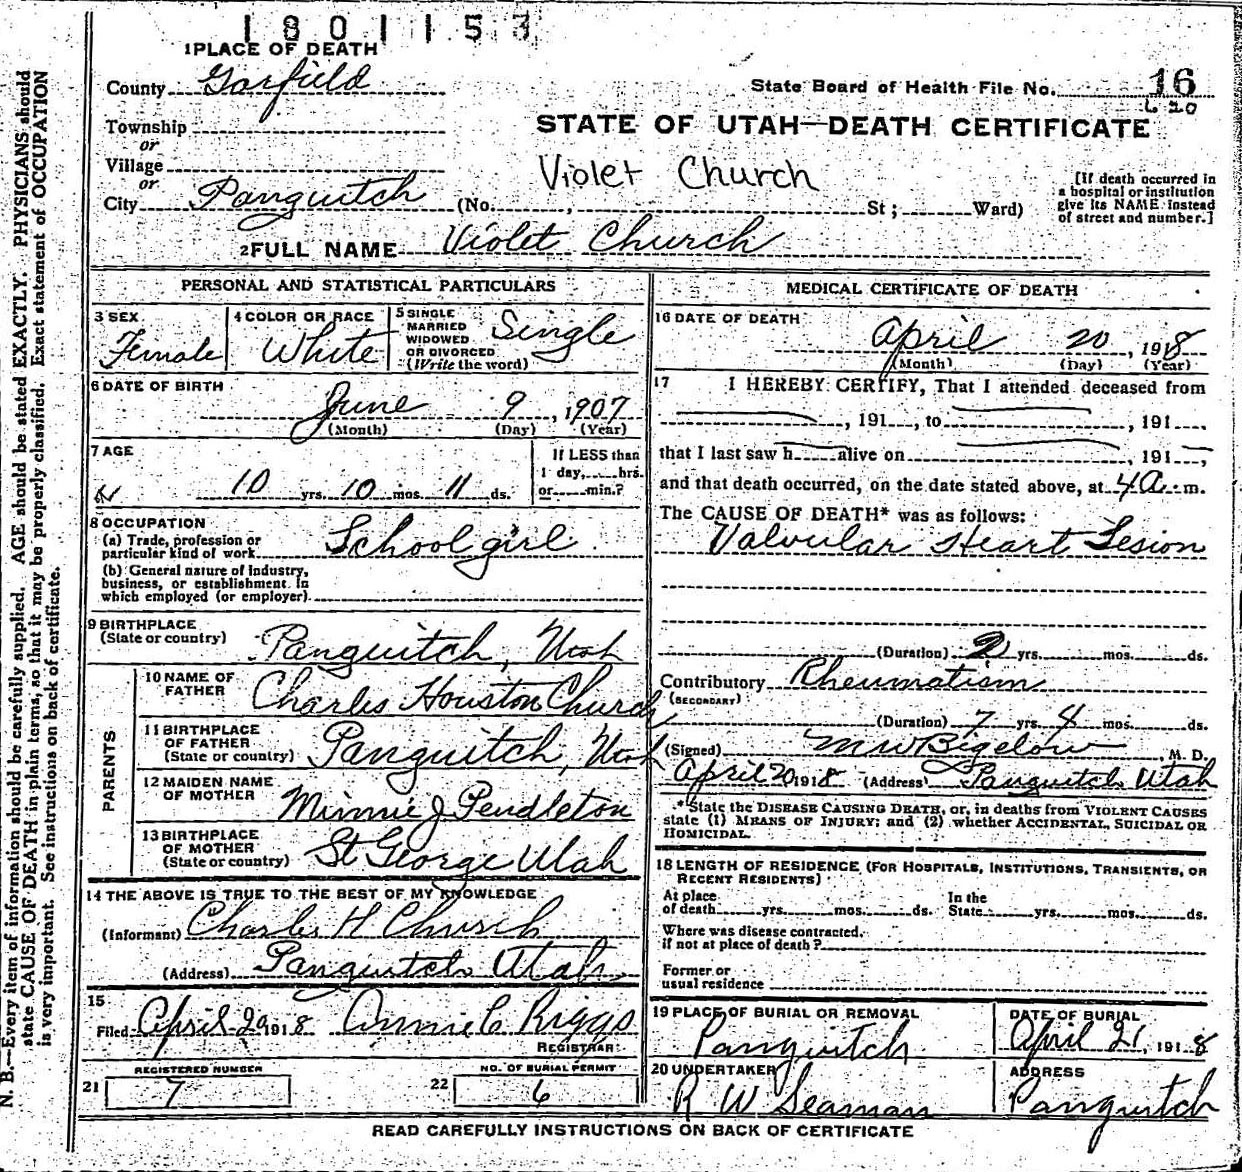 1801153
1 PLACE OF DEATH
County Garfield
State Board of Health File No. 16
Township
or
Village
or
City Panguitch (No. , St ; Ward)
STATE OF UTAH—DEATH CERTIFICATE
Violet Church
[If death occurred in
a hospital or institution
give its NAME instead
of street and number.]
2 FULL NAME Violet Church
PERSONAL AND STATISTICAL PARTICULARS
3 SEX
Female
4 COLOR OR RACE
White
5 SINGLE
MARRIED
WIDOWED
OR DIVORCED
(Write the word)
Single
6 DATE OF BIRTH
June 9, 1907
(Month) (Day) (Year)
7 AGE
10 yrs. 10 mos. 11 ds.
If LESS than
1 day, hrs.
or min.?
8 OCCUPATION
(a) Trade, profession or
particular kind of work School girl
(b) General nature of industry,
business, or establishment in
which employed (or employer)
9 BIRTHPLACE
(State or country)
Panguitch, Utah
PARENTS
10 NAME OF
FATHER
Charles Houston Church
11 BIRTHPLACE
OF FATHER
(State or country)
Panguitch, Utah
12 MAIDEN NAME
OF MOTHER
Minnie J Pendleton
13 BIRTHPLACE
OF MOTHER
(State or country)
St George Utah
14 THE ABOVE IS TRUE TO THE BEST OF MY KNOWLEDGE
(Informant) Charles H Church
(Address) Panguitch Utah
15
Filed April 29 1918 Annie C Riggs
REGISTRAR
REGISTERED NUMBER
21 7
NO. OF BURIAL PERMIT
22 6
MEDICAL CERTIFICATE OF DEATH
16 DATE OF DEATH
April 20, 1918
(Month) (Day) (Year)
17 I HEREBY CERTIFY, That I attended deceased from
, 191 , to , 191
that I last saw h alive on , 191 ,
and that death occurred, on the date stated above, at 4 a. m.
The CAUSE OF DEATH* was as follows:
Valvular Heart Lesion
(Duration) 2 yrs. mos. ds.
Contributory Rheumatism
(SECONDARY)
(Duration) 7 yrs. 4 mos. ds.
(Signed) M W Bigelow, M. D.
April 20 1918 (Address) Panguitch Utah
* State the DISEASE CAUSING DEATH, or, in deaths from VIOLENT CAUSES
state (1) MEANS OF INJURY; and (2) whether ACCIDENTAL, SUICIDAL OR
HOMICIDAL.
18 LENGTH OF RESIDENCE (FOR HOSPITALS, INSTITUTIONS, TRANSIENTS, OR
RECENT RESIDENTS)
At place
of death yrs. mos. ds.
In the
State yrs. mos. ds.
Where was disease contracted,
if not at place of death?
Former or
usual residence
19 PLACE OF BURIAL OR REMOVAL
Panguitch
DATE OF BURIAL
April 21, 1918
20 UNDERTAKER
R W Seaman
ADDRESS
Panguitch
READ CAREFULLY INSTRUCTIONS ON BACK OF CERTIFICATE
N. B.—Every item of information should be carefully supplied. AGE should be stated EXACTLY. PHYSICIANS should
state CAUSE OF DEATH in plain terms, so that it may be properly classified. Exact statement of OCCUPATION
is very important. See instructions on back of certificate.